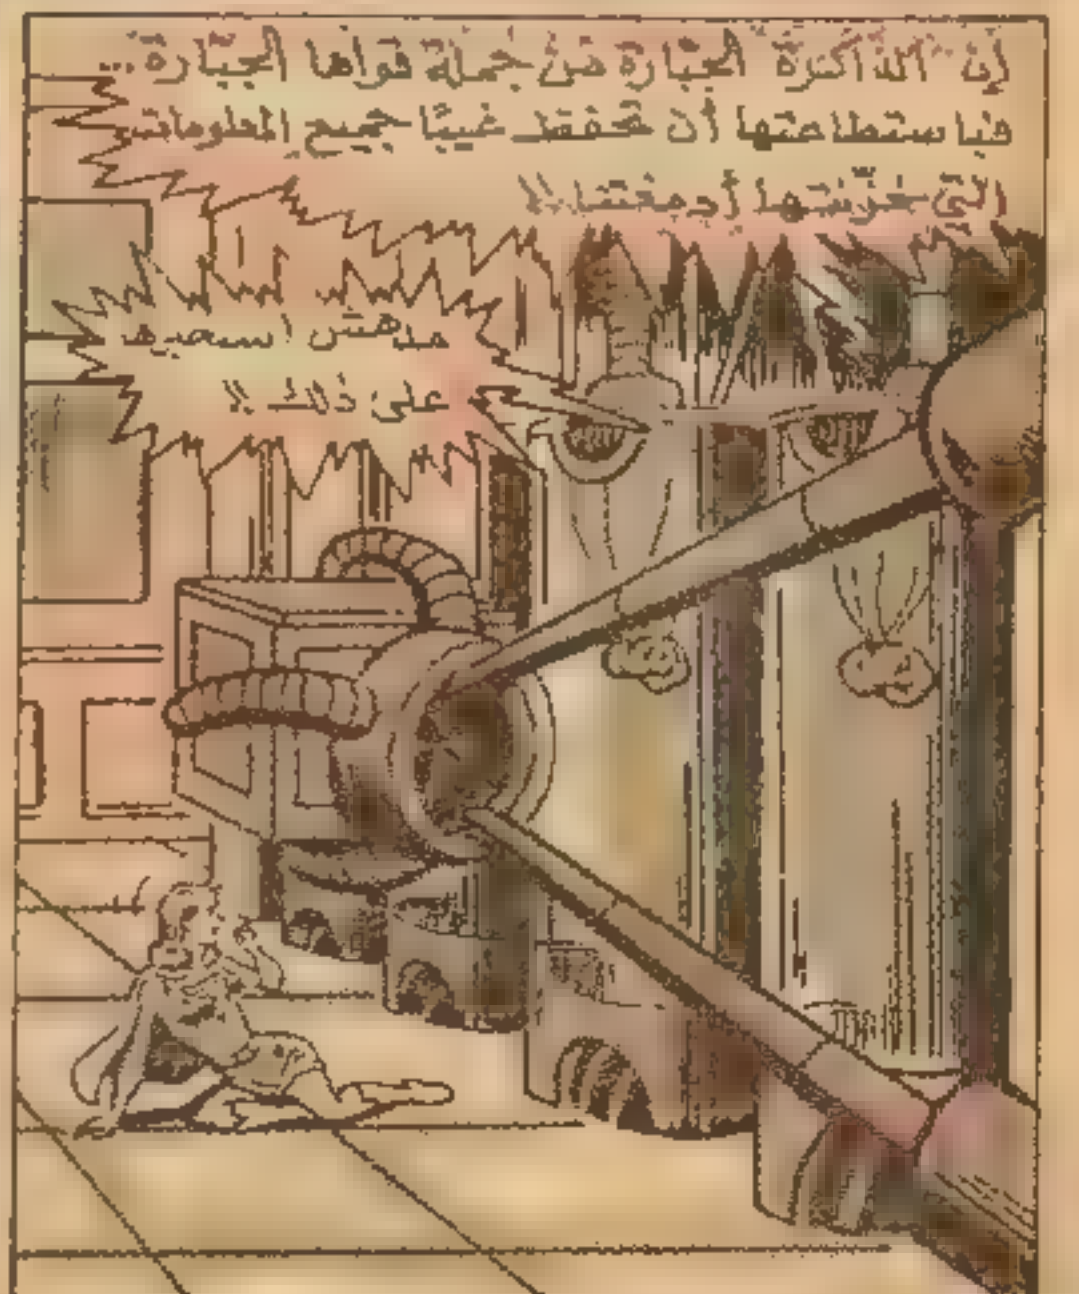 إن الذاكرة الجبّارة من جملة قواها الجبّارة...
فباستطاعتها أن تحفظ غيبًا جميع المعلومات
التي خزنتها أدمغتنا!!
سنستعيدها
على ذلك!!